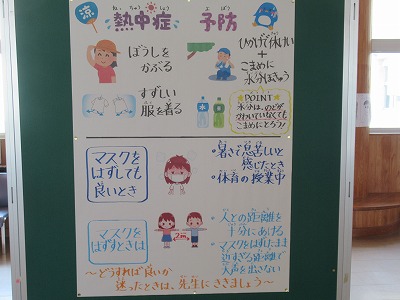 涼
ねっ ちゅう しょう よ ぼう
熱中症 予防
ぼうしを
かぶる
ひかげで休けい
+
こまめに
水分ほきゅう
すずしい
服を着る
水
POINT
水分は、のどが
かわいていなくても
こまめにとろう!
マスクを
はずしても
良いとき
・暑さで息苦しいと
感じたとき
・体育の授業中
マスクを
はずすときは
2m
・人との距離を
十分にあける
・マスクをはずしたまま
近すぎる距離で
大声を出さない
〜どうすれば良いか
迷ったときは、先生にききましょう〜